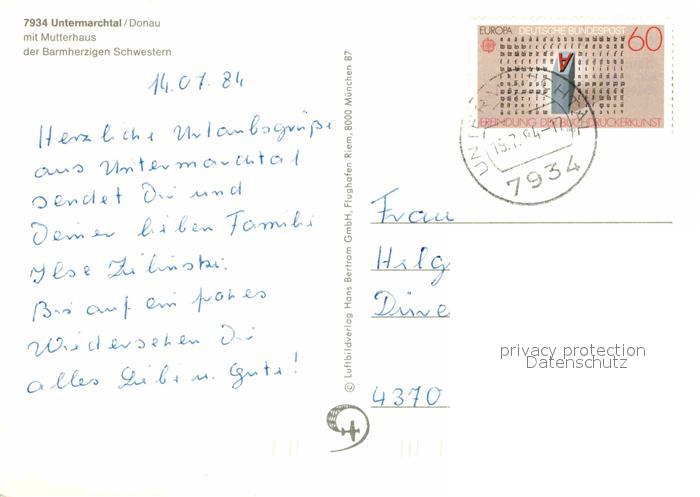 7934 Untermarchtal / Donau
mit Mutterhaus
der Barmherzigen Schwestern
14.07.84
Herzliche Urlaubsgrüße
aus Untermarchtal
sendet Dir und
Deiner lieben Familie
Ilse Zilinski.
Bis auf ein frohes
Wiedersehen Dir
alles Liebe u. Gute!
© Luftbildverlag Hans Bertram GmbH, Flughafen Riem, 8000 München 87
EUROPA DEUTSCHE BUNDESPOST 60
A
ERFINDUNG DER BUCHDRUCKERKUNST
7934
Frau
Helg
Düve
4370
privacy protection
Datenschutz